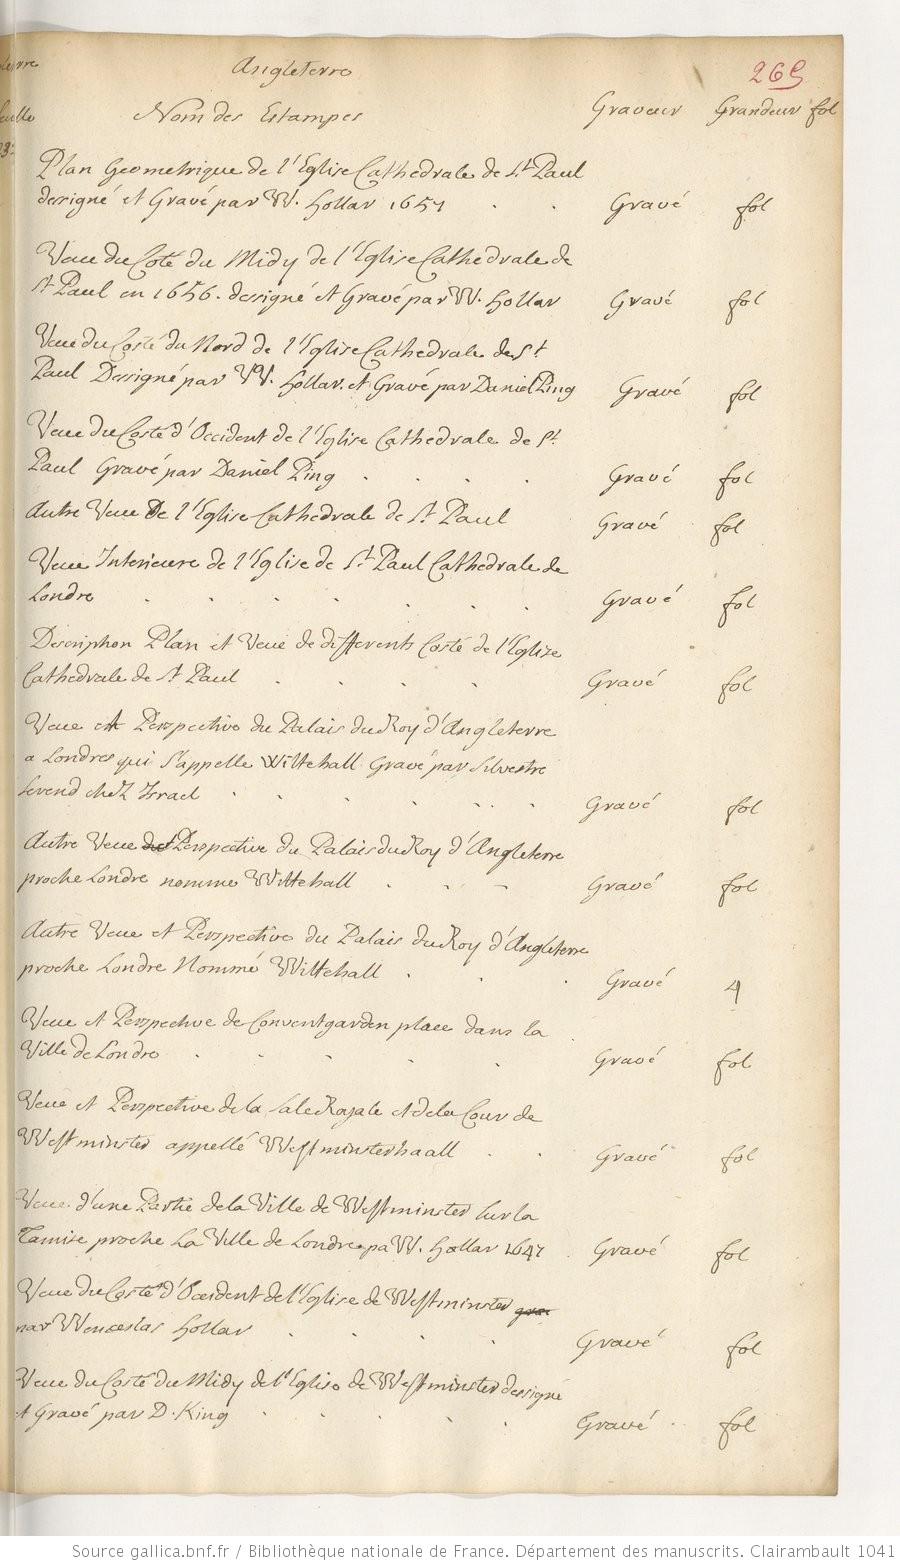 Angleterre
269
Nom des Estampes Graveur Grandeur fol
Plan Geometrique de l'Eglise Cathedrale de St Paul
dessigné et Gravé par W. Hollar 1657 . . Gravé fol
Veue du Coté du Midy de l'Eglise Cathedrale de
St Paul en 1656. dessigné et Gravé par W. Hollar Gravé fol
Veue du Costé du Nord de l'Eglise Cathedrale de St
Paul Dessigné par W. Hollar. et Gravé par Daniel Ping Gravé fol
Veue du Costé d'Occident de l'Eglise Cathedrale de St.
Paul Gravé par Daniel Ping . . . . Gravé fol
Autre Veue De l'Eglise Cathedrale de St. Paul Gravé fol
Veue Interieure de l'Eglise de St. Paul Cathedrale de
Londre . . . . . . . Gravé fol
Description Plan et Veue de differents Costé de l'Eglise
Cathedrale de St Paul . . . . Gravé fol
Veue et Perspective du Palais du Roy d'Angleterre
a Londres qui s'appelle Wittehall Gravé par Silvestre
se vend chez Israel . . . . . . . Gravé fol
Autre Veue et Perspective du Palais du Roy d'Angleterre
proche Londre nommé Wittehall . . . Gravé fol
Autre Veue et Perspective du Palais du Roy d'Angleterre
proche Londre Nommé Wittehall . . . Gravé 4
Veue et Perspective de Conventgarden place dans la
Ville de Londre . . . . . Gravé fol
Veue et Perspective de la Sale Royale et de la Cour de
Westminster appellé Westminsterhaall . . Gravé fol
Veue d'une Partie de la Ville de Westminster sur la
Tamise proche La Ville de Londre pa W. Hollar 1647 . Gravé fol
Veue du Costé d'Occident de l'Eglise de Westminster
par Wenceslas Hollar . . . . Gravé fol
Veue du Costé du Midy de l'Eglise de Westminster dessigné
et Gravé par D. King . . . . . Gravé . fol
Source gallica.bnf.fr / Bibliothèque nationale de France. Département des manuscrits. Clairambault 1041